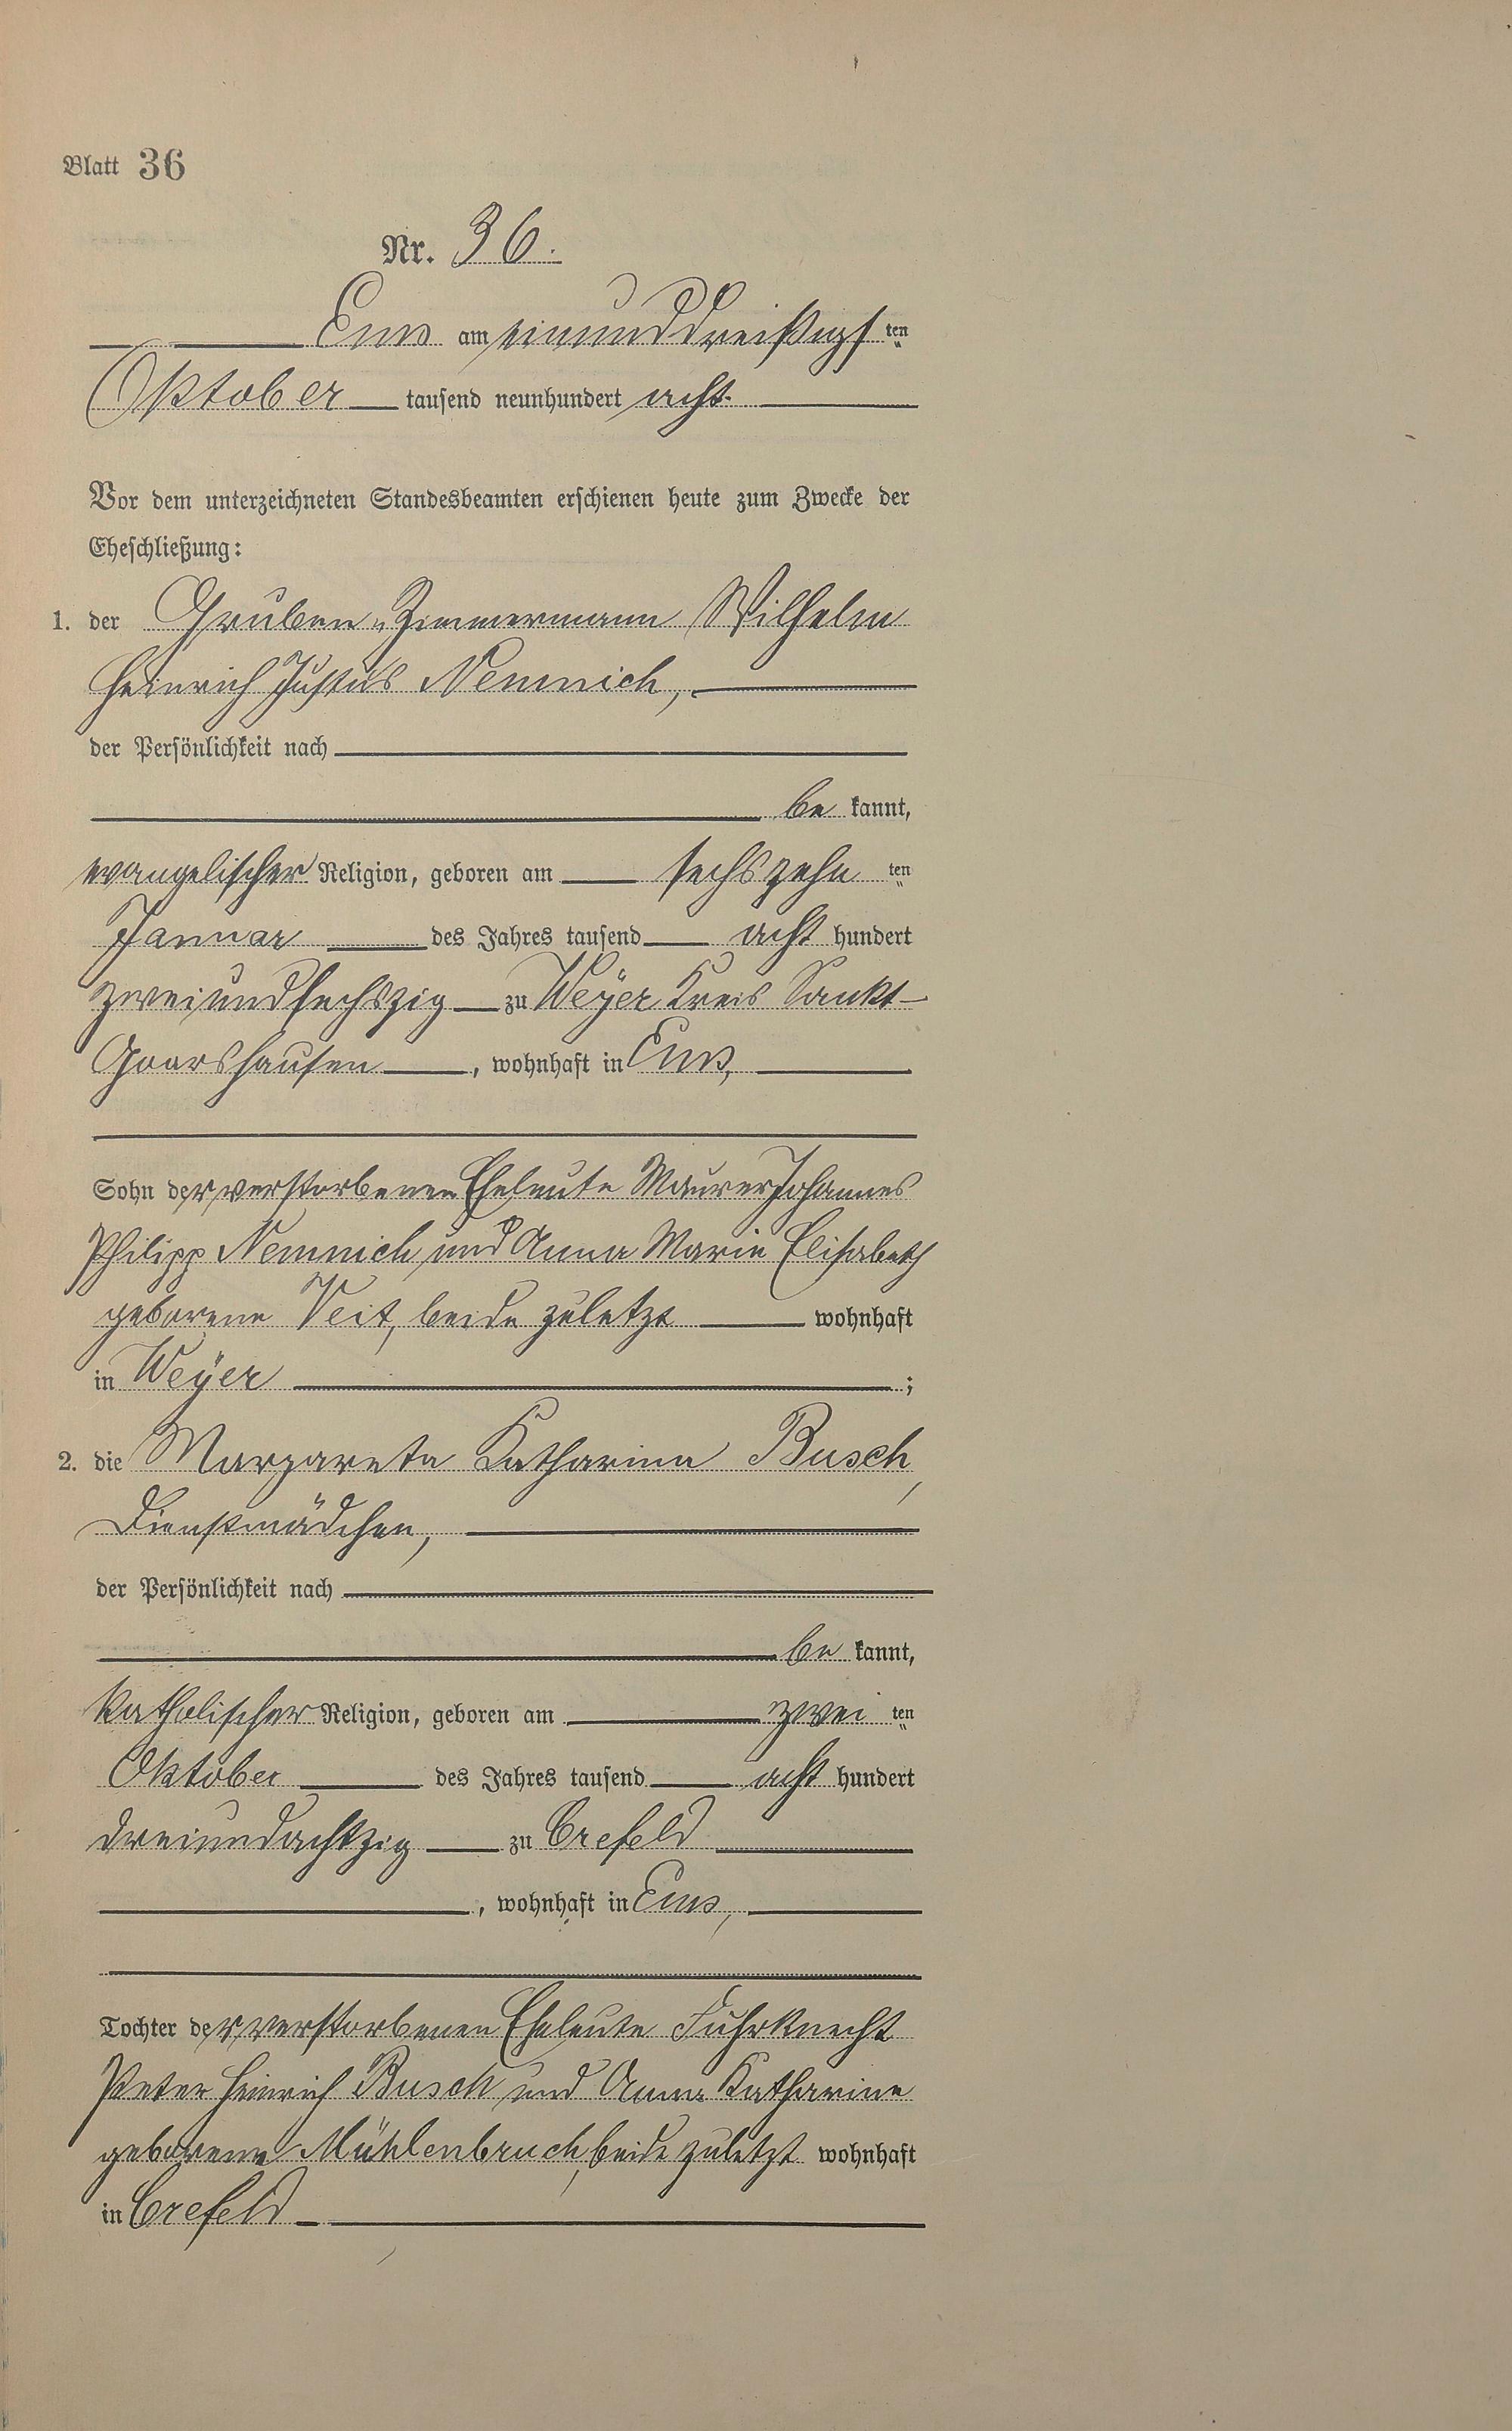 Blatt 36
Nr. 36.
Ems am einunddreißigsten
Oktober tausend neunhundert acht
Vor dem unterzeichneten Standesbeamten erschienen heute zum Zwecke der
Eheschließung:
1. der Gruben-Zimmermann Wilhelm
Heinrich Justus Nemnich,
der Persönlichkeit nach
be kannt,
evangelischer Religion, geboren am sechszehn ten
Januar des Jahres tausend acht hundert
zweiundsechszig zu Weyer Kreis Sankt-
Goarshausen, wohnhaft in Ems,
Sohn der verstorbenen Eheleute Maurer Johannes
Philipp Nemnich und Anna Maria Elisabeth
geborene Veit, beide zuletzt wohnhaft
in Weyer ;
2. die Margareta Katharina Busch,
Dienstmädchen,
der Persönlichkeit nach
be kannt,
katholischer Religion, geboren am zwei ten
Oktober des Jahres tausend acht hundert
dreiundachtzig zu Crefeld
, wohnhaft in Ems,
Tochter der verstorbenen Eheleute Fuhrknecht
Peter Heinrich Busch und Anna Katharina
geborene Mühlenbruch, beide zuletzt wohnhaft
in Crefeld